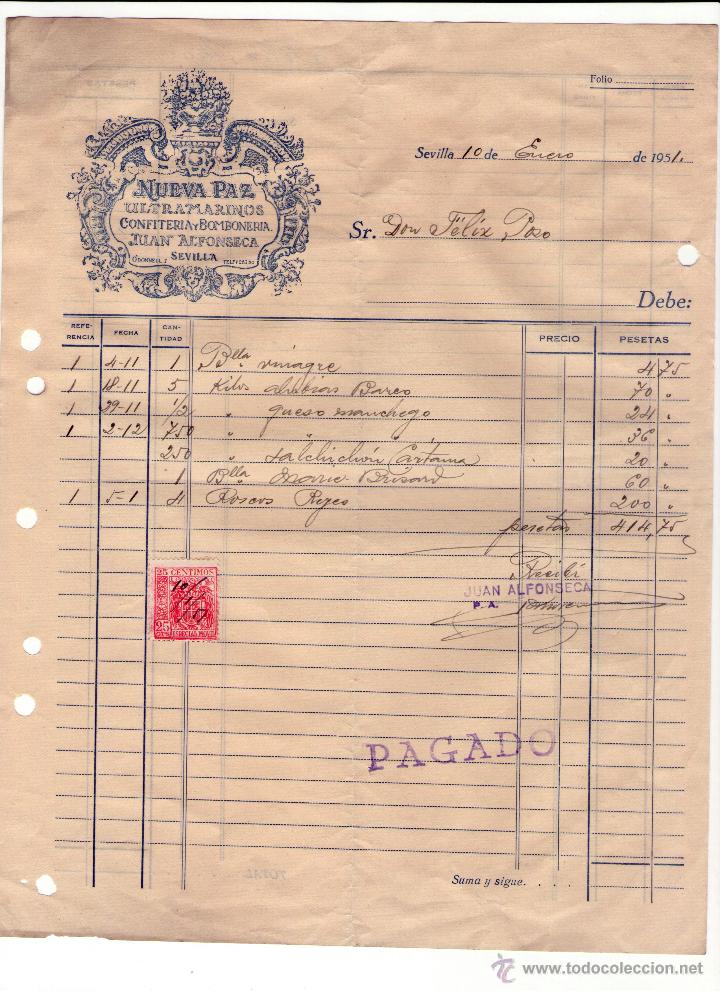 Folio
Sevilla 10 de Enero de 1951.
NUEVA PAZ
ULTRAMARINOS
CONFITERIA Y BOMBONERIA
JUAN ALFONSECA
SEVILLA
O'DONNELL
Sr. Don Félix Poso
Debe:
REFE-RENCIA FECHA CAN-TIDAD PRECIO PESETAS
1 4-11 1 Blla. vinagre 4 75
1 18-11 5 Kilos alubias Barco 70 "
1 29-11 1/2 " queso manchego 24 "
1 2-12 750 " " " 36 "
250 " salchichón Cártama 20 "
1 Blla Marie Brisard 60 "
1 5-1 4 Roscos Reyes 200 "
pesetas 414,75
Recibí
JUAN ALFONSECA
P. A.
25 CENTIMOS
25
ESPECIAL MOVIL
PAGADO
TOTAL
Suma y sigue. . . .
www.todocoleccion.net